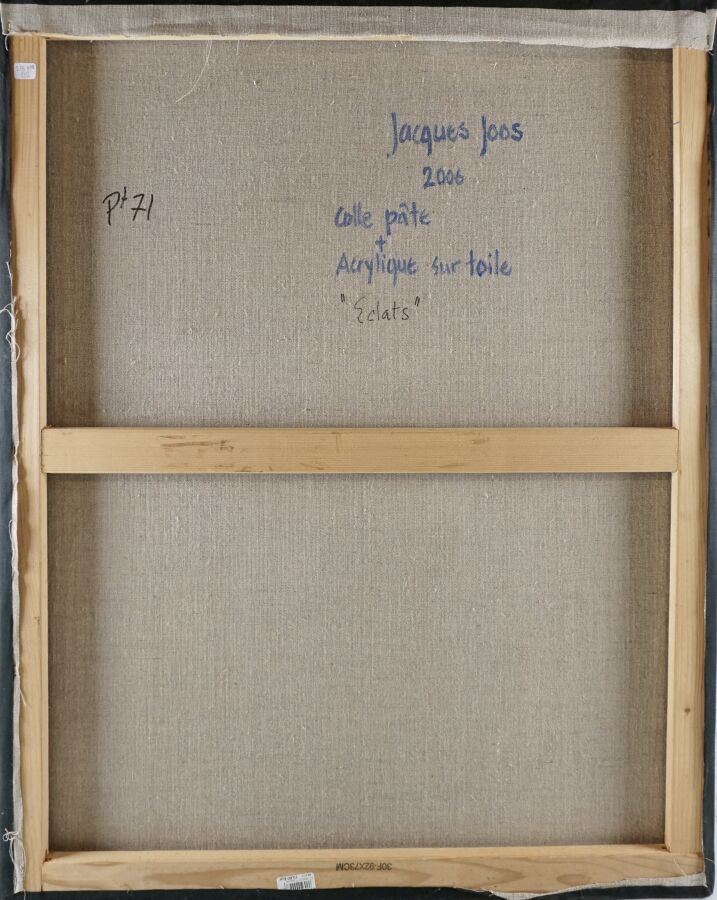 Jacques Joos
2006
Pt 71
Colle pâte
+
Acrylique sur toile
"Eclats"
30F-92X73CM